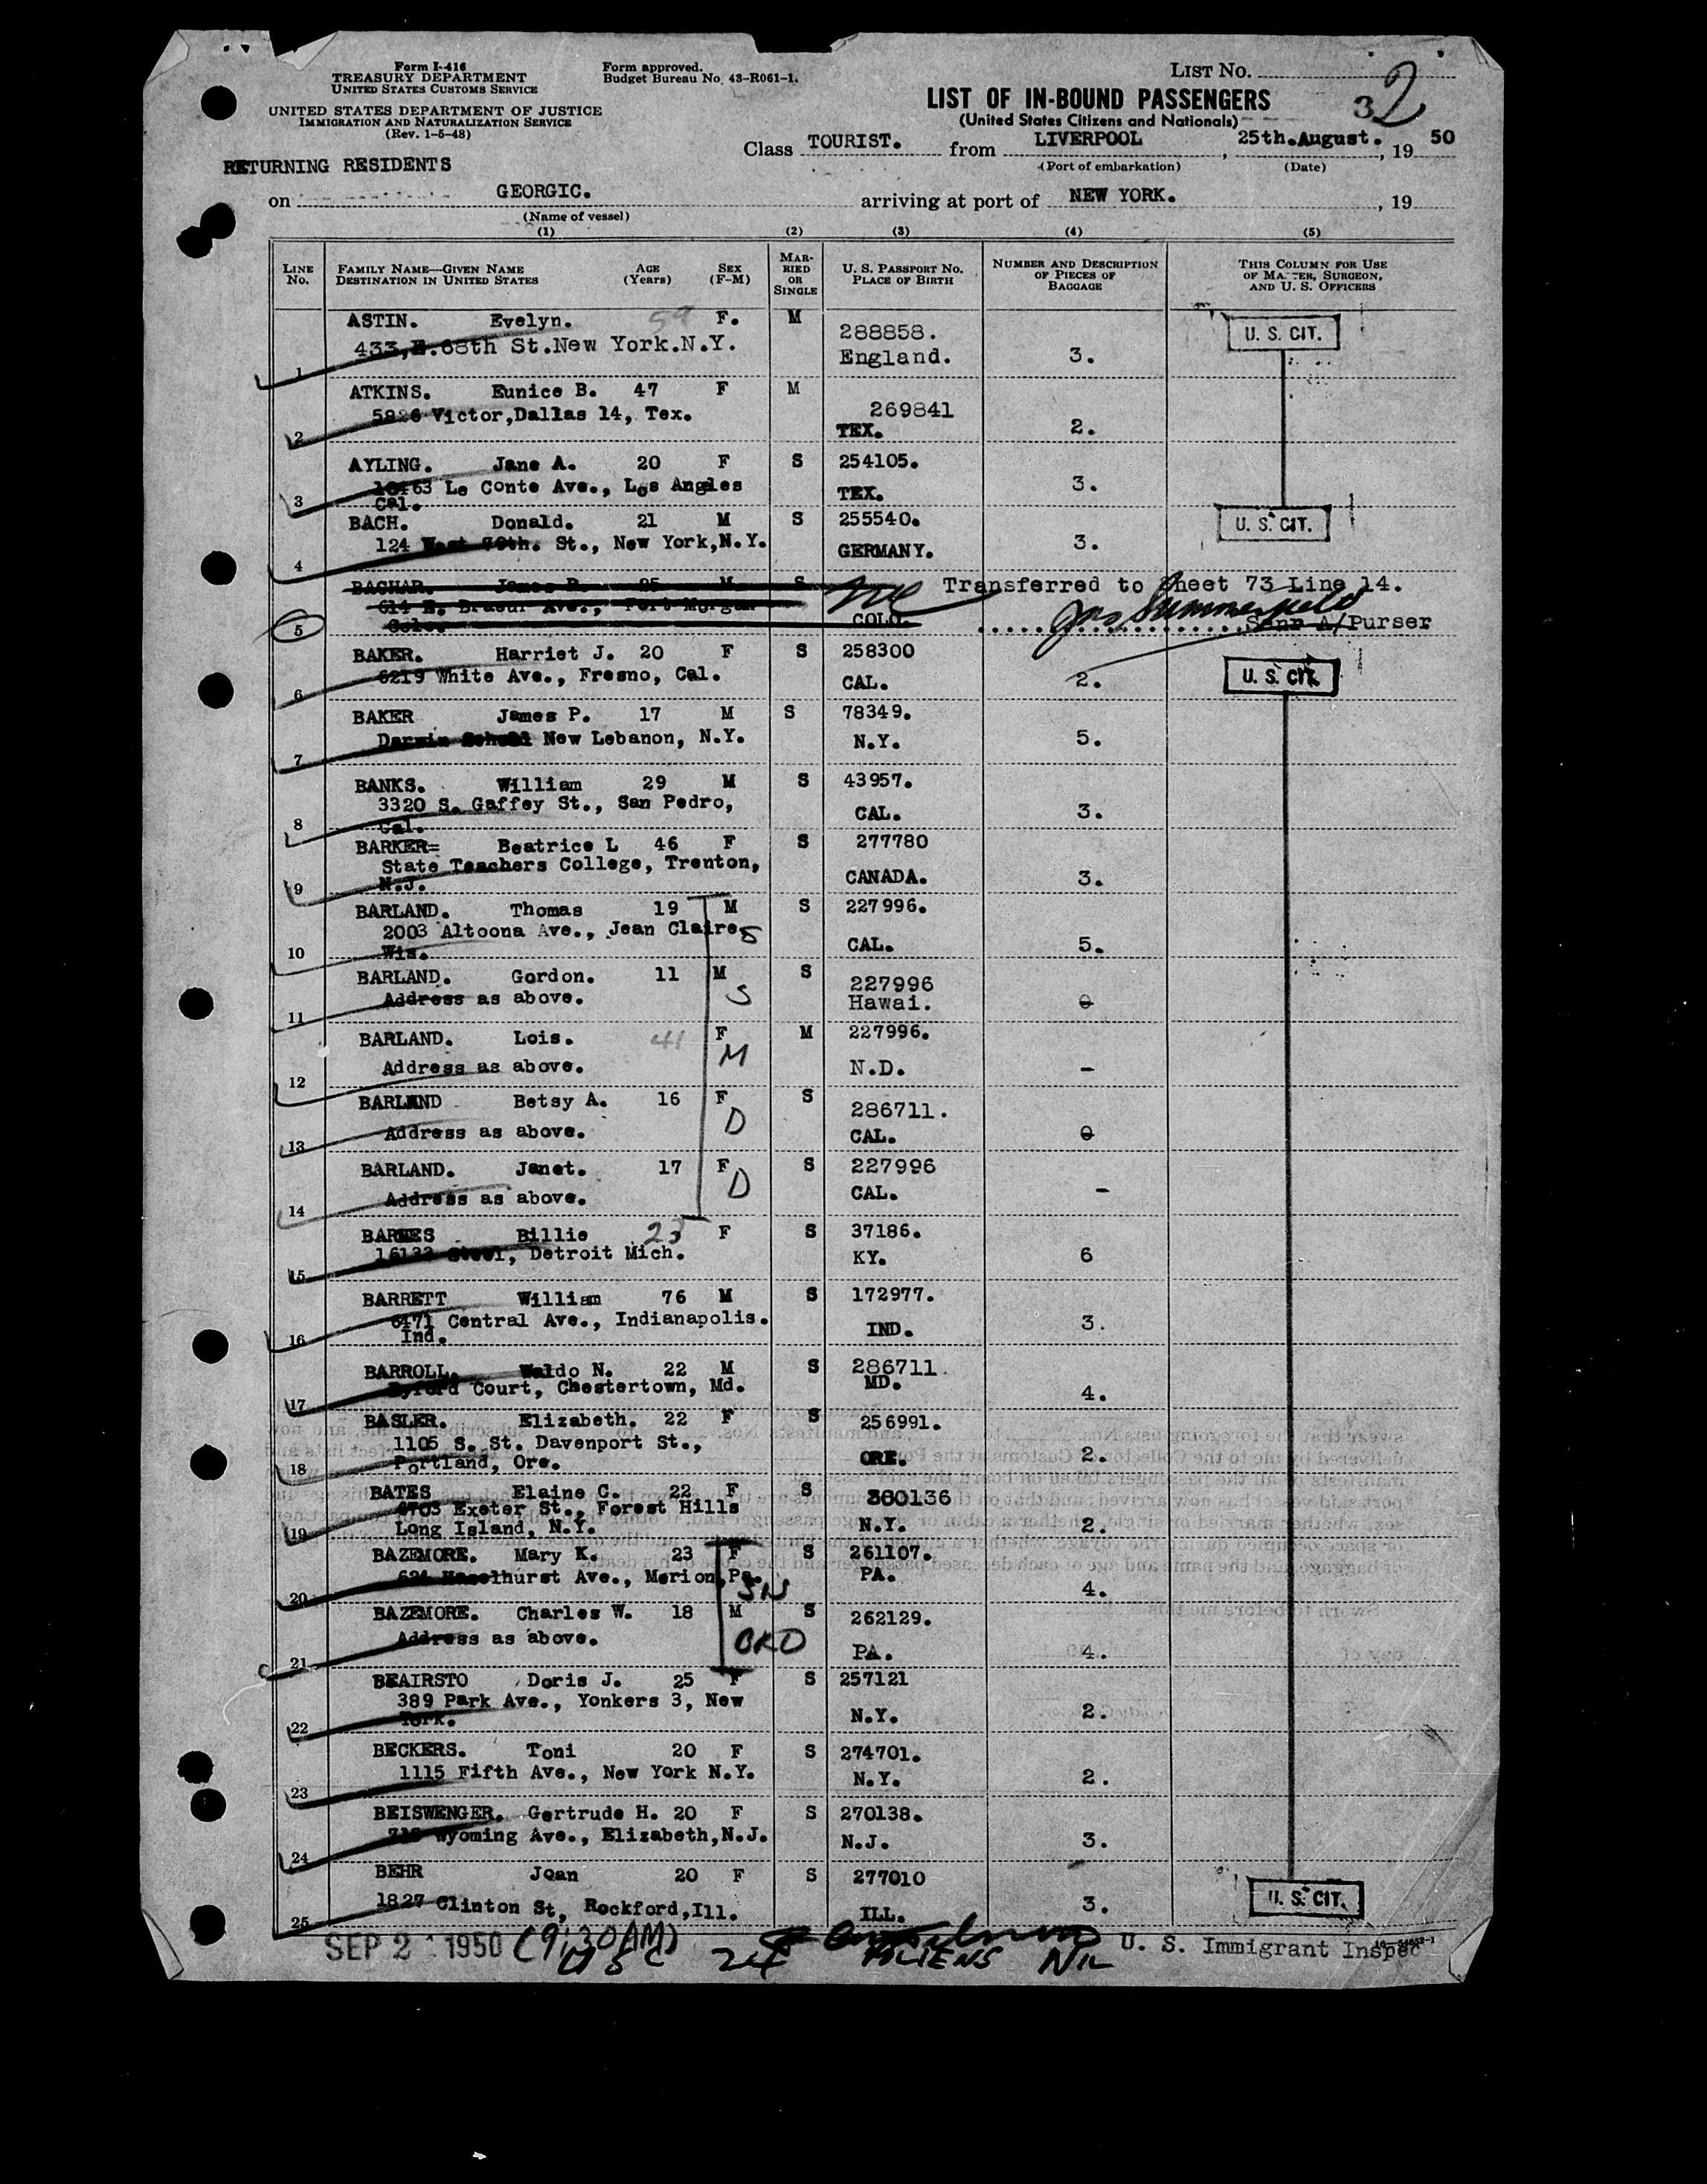 Form I-416
TREASURY DEPARTMENT
UNITED STATES CUSTOMS SERVICE
UNITED STATES DEPARTMENT OF JUSTICE
IMMIGRATION AND NATURALIZATION SERVICE
(Rev. 1-5-48)
Form approved.
Budget Bureau No. 43-R061-1.
LIST No.
LIST OF IN-BOUND PASSENGERS
(United States Citizens and Nationals)
3 2
Class TOURIST. from LIVERPOOL, 25th.August., 19 50
(Port of embarkation) (Date)
RETURNING RESIDENTS
on GEORGIC. arriving at port of NEW YORK., 19
(Name of vessel)
(1) (2) (3) (4) (5)
LINE No. FAMILY NAME—GIVEN NAME DESTINATION IN UNITED STATES AGE (Years) SEX (F-M) MARRIED OR SINGLE U. S. PASSPORT NO. PLACE OF BIRTH NUMBER AND DESCRIPTION OF PIECES OF BAGGAGE THIS COLUMN FOR USE OF MASTER, SURGEON, AND U. S. OFFICERS
ASTIN. Evelyn. 59 F. M 288858. U. S. CIT.
433, .68th St.New York.N.Y. England. 3.
1
ATKINS. Eunice B. 47 F M 269841
5826 Victor,Dallas 14, Tex. TEX. 2.
2
AYLING. Jane A. 20 F S 254105.
Le Conte Ave., Los Angles TEX. 3.
3 Cal.
BACH. Donald. 21 M S 255540. U. S. CIT.
124 West 79th. St., New York,N.Y. GERMANY. 3.
4
BACHAR. James R. 25 M S Transferred to Sheet 73 Line 14.
614 E. Ave., Fort Morgan COLO. Jas Summerfield
5 Colo. Senr A/Purser
BAKER. Harriet J. 20 F S 258300 U. S. CIT.
6219 White Ave., Fresno, Cal. CAL. 2.
6
BAKER James P. 17 M S 78349.
Darwin School New Lebanon, N.Y. N.Y. 5.
7
BANKS. William 29 M S 43957.
3320 S. Gaffey St., San Pedro, CAL. 3.
8 Cal.
BARKER= Beatrice L 46 F S 277780
State Teachers College, Trenton, CANADA. 3.
9 N.J.
BARLAND. Thomas 19 M S 227996.
2003 Altoona Ave., Jean Claire, S CAL. 5.
10 Wis.
BARLAND. Gordon. 11 M S 227996
Address as above. S Hawai. 0
11
BARLAND. Lois. 41 F M 227996.
Address as above. M N.D. -
12
BARLAND Betsy A. 16 F S 286711.
Address as above. D CAL. 0
13
BARLAND. Janet. 17 F S 227996
Address as above. D CAL. -
14
BARNES Billie 23 F S 37186.
Detroit Mich. KY. 6
15
BARRETT William 76 M S 172977.
6471 Central Ave., Indianapolis. IND. 3.
16 Ind.
BARROLL. Waldo N. 22 M S 286711
Byford Court, Chestertown, Md. MD. 4.
17
BASLER. Elizabeth. 22 F S 256991.
1105 S. St. Davenport St., ORE. 2.
18 Portland, Ore.
BATES Elaine C. 22 F S 380136
6703 Exeter St., Forest Hills N.Y. 2.
19 Long Island, N.Y.
BAZEMORE. Mary K. 23 F S 261107.
621 Hazelhurst Ave., Merion,Pa. SIS PA. 4.
20
BAZEMORE. Charles W. 18 M S 262129.
Address as above. BRO PA. 4.
21
BEAIRSTO Doris J. 25 F S 257121
389 Park Ave., Yonkers 3, New N.Y. 2.
22 York.
BECKERS. Toni 20 F S 274701.
1115 Fifth Ave., New York N.Y. N.Y. 2.
23
BEISWENGER. Gertrude H. 20 F S 270138.
Wyoming Ave., Elizabeth,N.J. N.J. 3.
24
BEHR Joan 20 F S 277010 U. S. CIT.
1827 Clinton St, Rockford,Ill. ILL. 3.
25
SEP 2 1950 (9:30AM) U. S. Immigrant Inspec
USC 24 ALIENS NIL